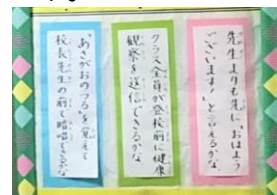 先生よりも先に、「おはよう
ございます!」と言えるかな。
クラス全員が登校前に健康
観察を送信できるかな。
「あさがおのつる」を覚えて
校長先生の前で暗唱できるかな